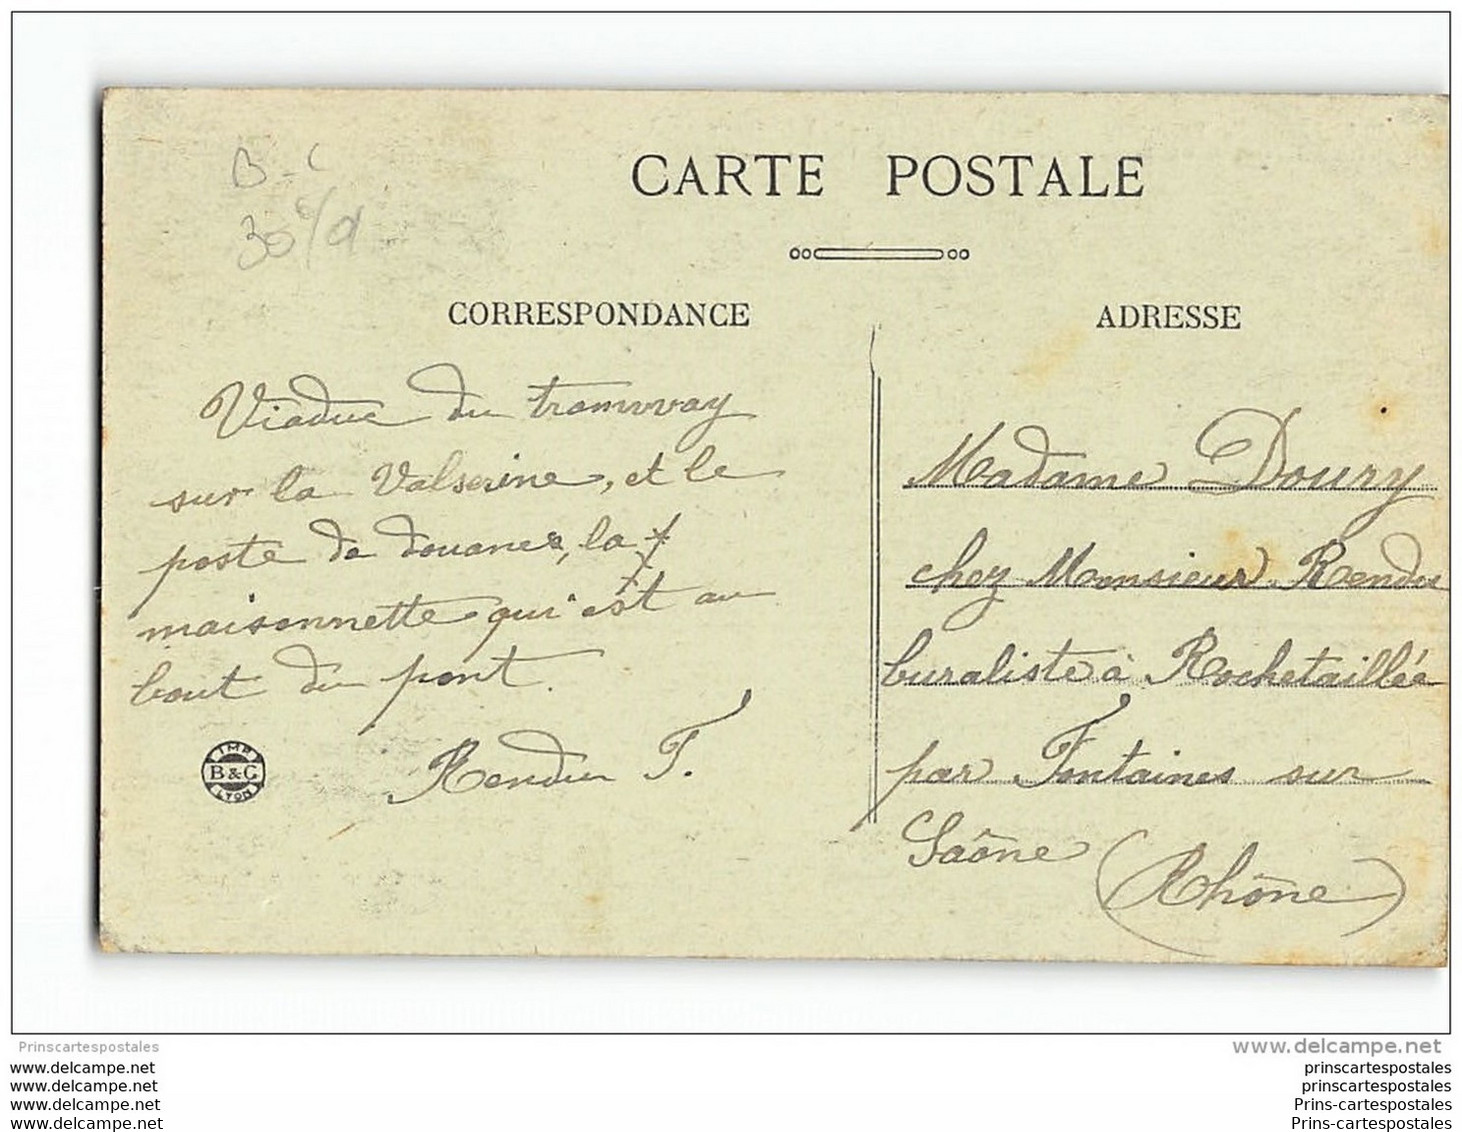 B-C
CARTE POSTALE
CORRESPONDANCE
Viaduc du tramway
sur la Valserine, et le
poste de douanes, la
maisonnette qui est au
bout du pont.
Rendu F.
IMP
B & G
LYON
ADRESSE
Madame Doury
chez Monsieur Rendu
buraliste à Rochetaillée
par Fontaines sur
Saône (Rhône)
Prinscartespostales
www.delcampe.net
www.delcampe.net
www.delcampe.net
www.delcampe.net
www.delcampe.net
prinscartespostales
prinscartespostales
Prins-cartespostales
Prins-cartespostales